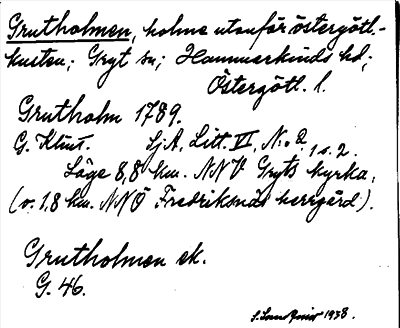 Grutholmen, holme utanför östergötl.-
kusten; Gryt sn; Hammarkinds hd;
Östergötl. l.
Grutholm 1789.
G. Klint. SjA, Litt. VI, N:o 2,
1 o. 2.
Läge 8,8 km. NNV Gryts kyrka,
(o. 1,8 km. NNÖ Fredriksnäs herrgård).
Grutholmen ek.
G. 46.
1938.